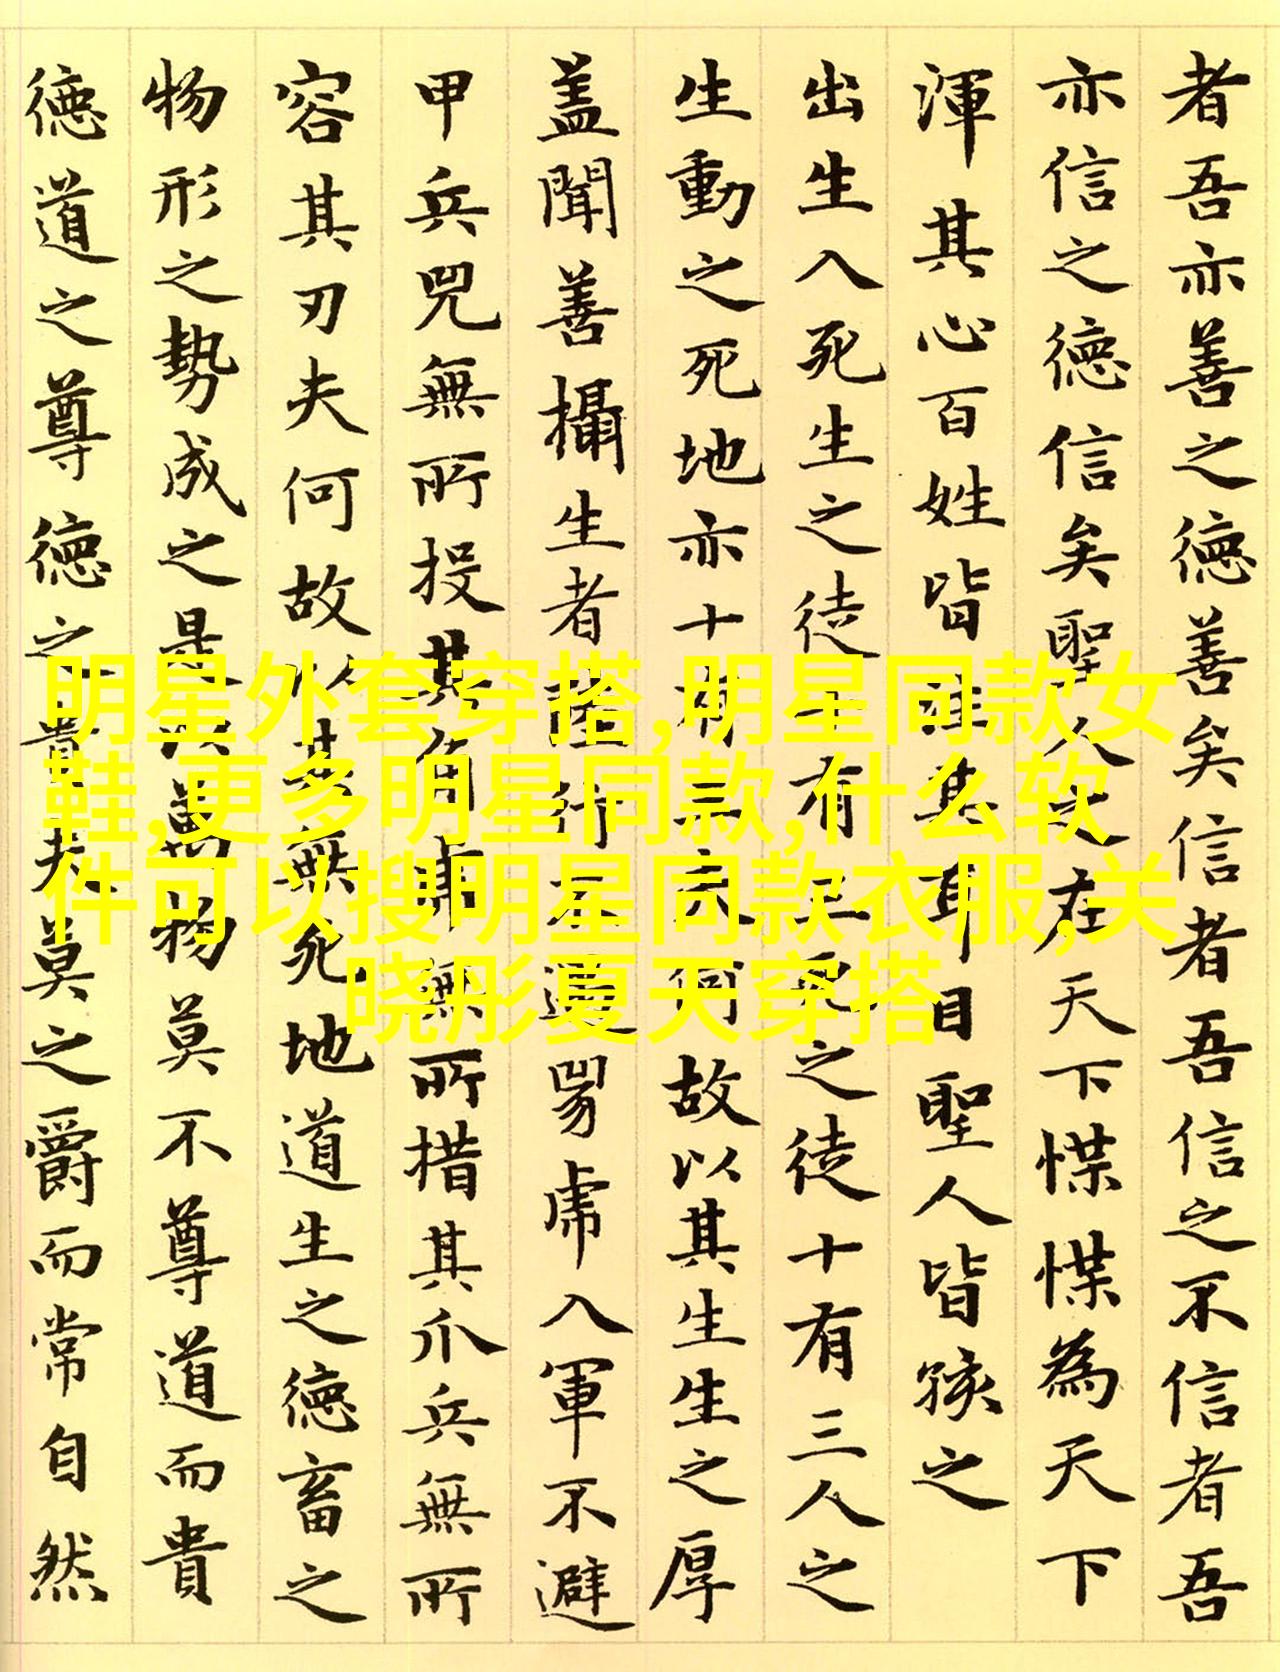 者吾亦善之德善矣信者吾信之不信者吾
亦信之德信矣聖人之在天下惵惵為天下
渾其心百姓皆註其耳目聖人皆孩之
出生入死生之徒十有三死之徒十有三人之
生動之死地亦十有三夫何故以其生生之厚
蓋聞善攝生者陸行不遇兕虎入軍不避
甲兵兕無所投其角虎無所措其爪兵無所
容其刃夫何故以其無死地道生之德畜之
物形之勢成之是以萬物莫不尊道而貴
德道之尊德之貴夫莫之爵而常自然
明星外套穿搭,明星同款女
鞋,更多明星同款,什么软
件可以搜明星同款衣服,关
晓彤夏天穿搭